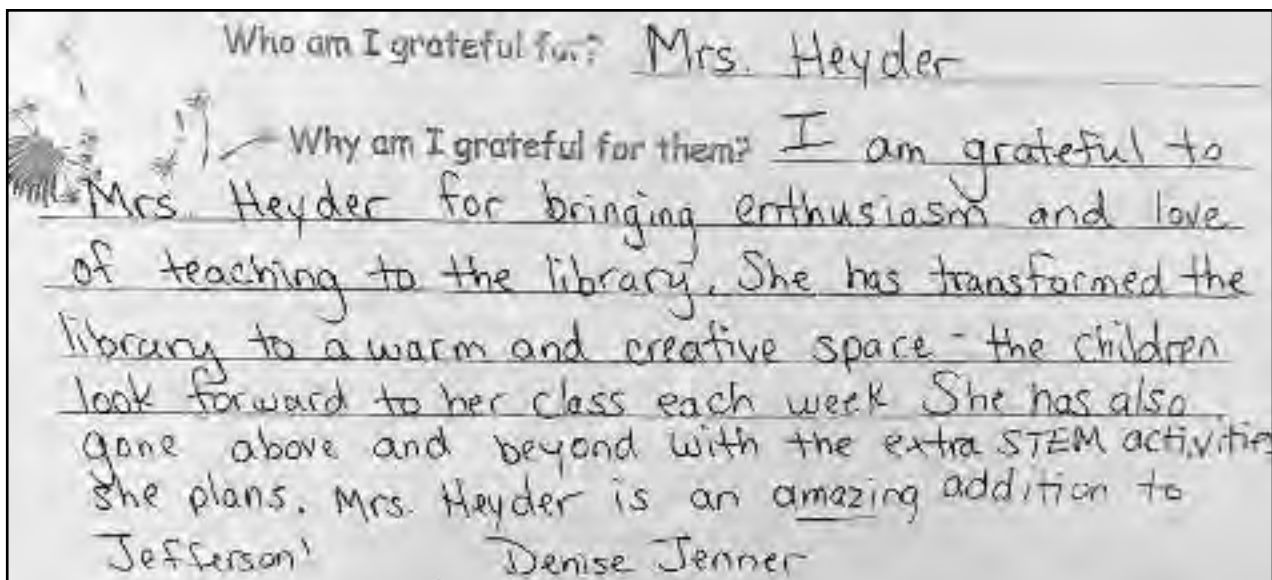 Who am I grateful for? Mrs. Heyder
Why am I grateful for them? I am grateful to
Mrs. Heyder for bringing enthusiasm and love
of teaching to the library. She has transformed the
library to a warm and creative space - the children
look forward to her class each week She has also
gone above and beyond with the extra STEM activities
she plans. Mrs. Heyder is an amazing addition to
Jefferson! Denise Jenner